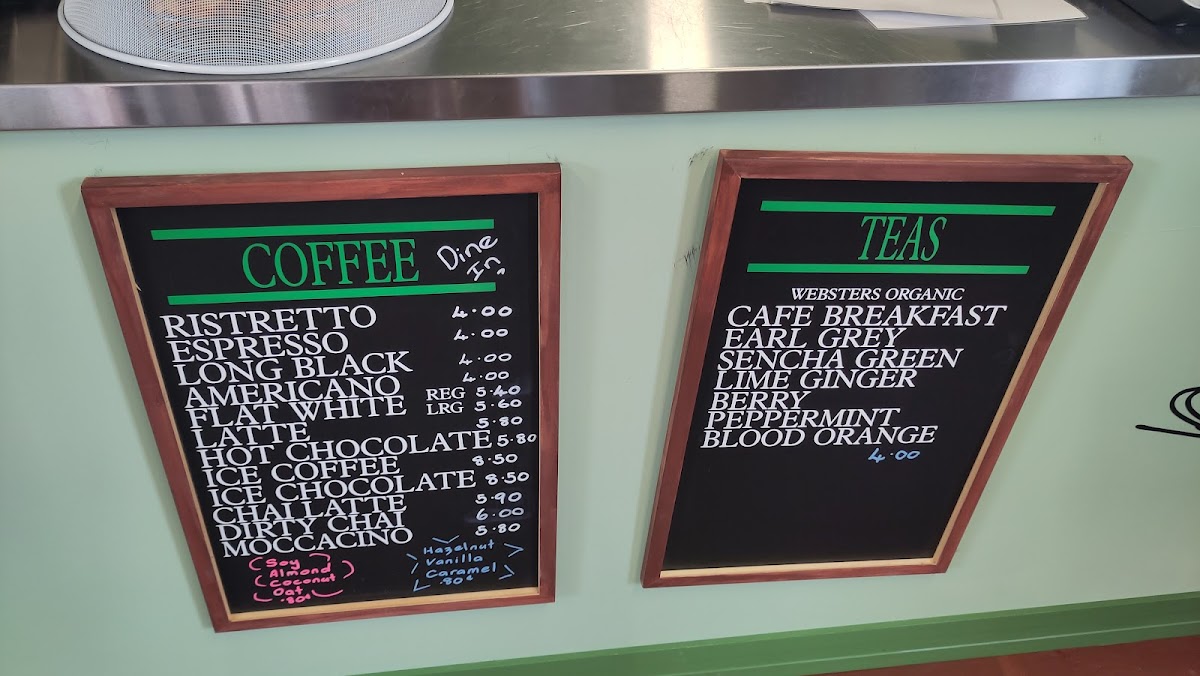 COFFEE Dine In
RISTRETTO 4.00
ESPRESSO 4.00
LONG BLACK 4.00
AMERICANO 4.00
FLAT WHITE REG 5.40
LRG 5.60
LATTE 5.80
HOT CHOCOLATE 5.80
ICE COFFEE 8.50
ICE CHOCOLATE 8.50
CHAI LATTE 5.90
DIRTY CHAI 6.00
MOCCACINO 5.80
Soy
Almond
Coconut
Oat
.80¢
Hazelnut
Vanilla
Caramel
.80¢
TEAS
WEBSTERS ORGANIC
CAFE BREAKFAST
EARL GREY
SENCHA GREEN
LIME GINGER
BERRY
PEPPERMINT
BLOOD ORANGE
4.00